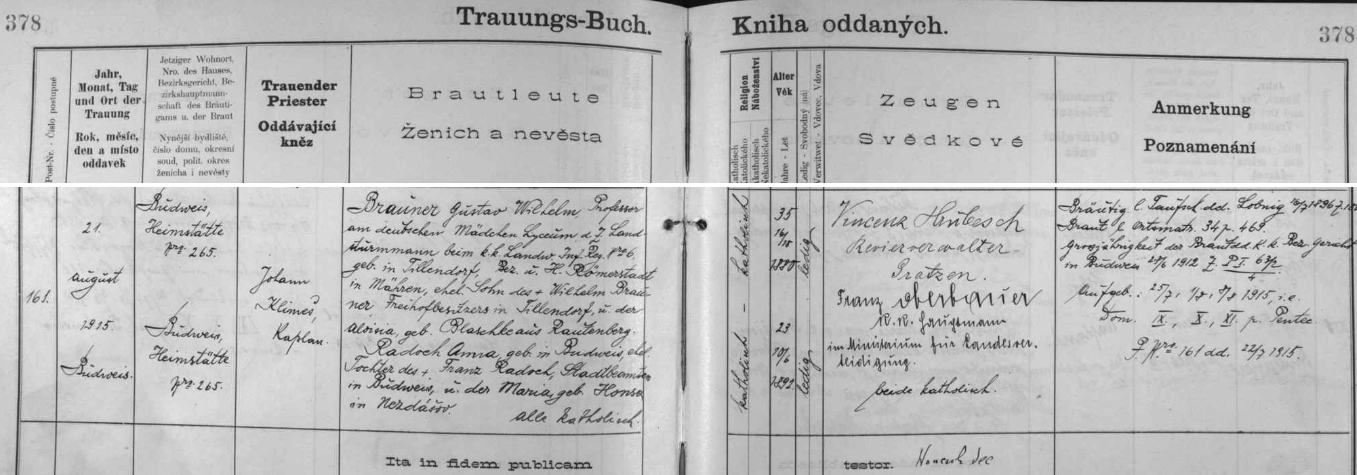 378
Trauungs-Buch.
Kniha oddaných.
378
Post-Nr. - Číslo postupné
Jahr,
Monat, Tag
und Ort der
Trauung
Rok, měsíc,
den a místo
oddavek
Jetziger Wohnort,
Nro. des Hauses,
Bezirksgericht, Be-
zirkshauptmann-
schaft des Bräuti-
gams u. der Braut
Nynější bydliště,
číslo domu, okresní
soud, polit. okres
ženicha i nevěsty
Trauender
Priester
Oddávající
kněz
Brautleute
Ženich a nevěsta
Religion
Náboženství
Alter
Věk
Jahre - Let
Ledig - Svobodný (ná)
Verwitwet - Vdovec, Vdova
Zeugen
Svědkové
Anmerkung
Poznamenání
161.
21.
august
1915
Budweis.
Budweis,
Heimstätte
Nro 265.
Budweis,
Heimstätte
Nro 265.
Johann
Klimeš,
Kaplan.
Brauner Gustav Wilhelm, Professor
am deutschen Mädchen Lyceum d. Z. Land-
sturmmann beim k.k. Landw. Inf. Reg. No 6.
geb. in Tillendorf, Bez. u. H. Römerstadt
in Mähren, ehel. Sohn des + Wilhelm Brau-
ner, Freihofbesitzers in Tillendorf, u. der
Aloisia, geb. Blaschke aus Rautenberg.
Radoch Anna, geb. in Budweis, ehel.
Tochter des + Franz Radoch, Stadtbeamter
in Budweis, u. der Maria, geb. Honsa
in Nezdašov.
alle katholisch.
katholisch - katholisch
35
16/
1880
ledig
23
10/6
1892
ledig
Vincenz Hrubesch
Revierverwalter
Gratzen.
Franz Oberbauer
K. K. Hauptmann
im Ministerium für Landesver-
teidigung.
beide katholisch.
Bräutig. l. Taufsch. dd. Lobnig
Braut l. Ortsmatr. 34 p. 469.
Grossjährigkeit der Braut dd. k. k. Bez. Gericht
in Budweis 1912
Aufgeb.: 25/7, 1/8, 8/8 1915, i.e.
Dom. IX, X, XI. p. Pentec
P. Nro 161 dd. 22/7 1915.
Ita in fidem publicam
testor.